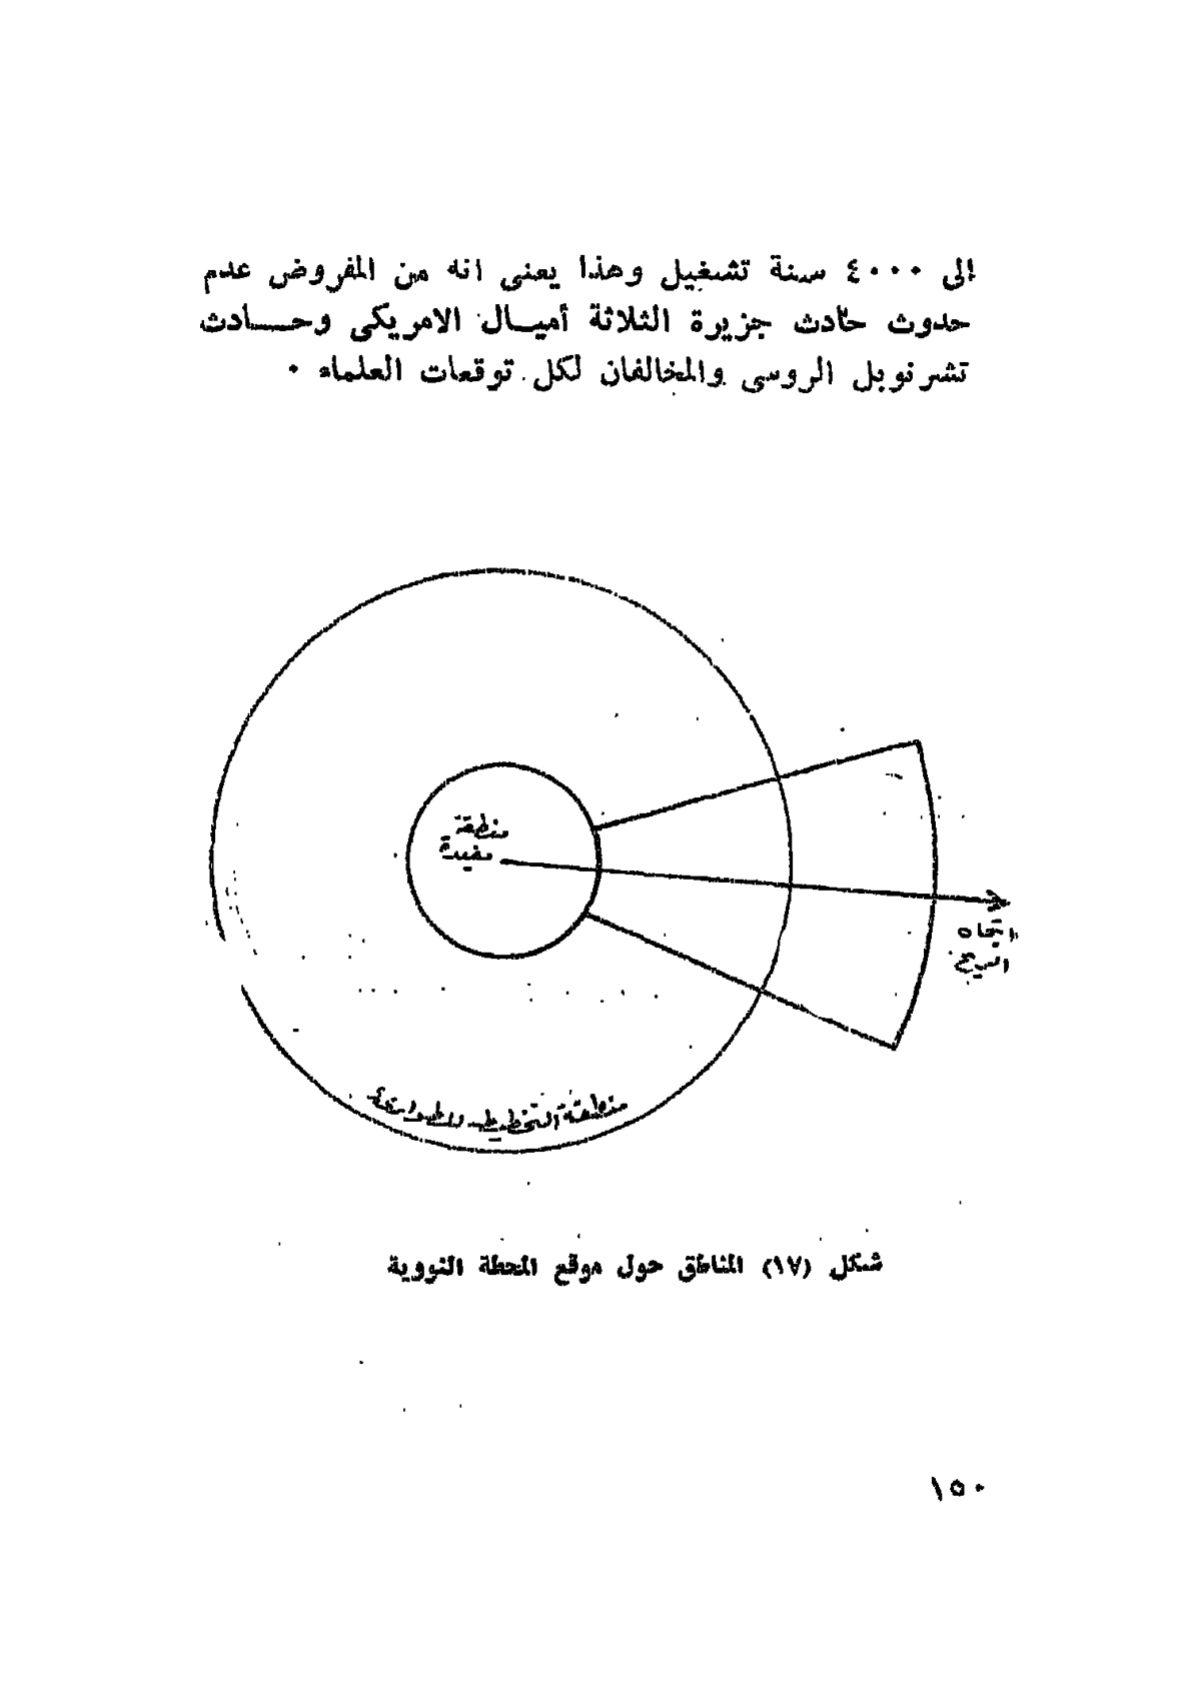 الى ٤٠٠٠ سنة تشغيل وهذا يعنى انه من المفروض عدم
حدوث حادث جزيرة الثلاثة أميــال الامريكى وحـــادث
تشرنوبل الروسى والمخالفان لكل توقعات العلماء ٠
منطقة
مقيدة
إتجاه
الريح
منطقة التخطيط للطوارىء
شكل (١٧) المناطق حول موقع المحطة النووية
١٥٠